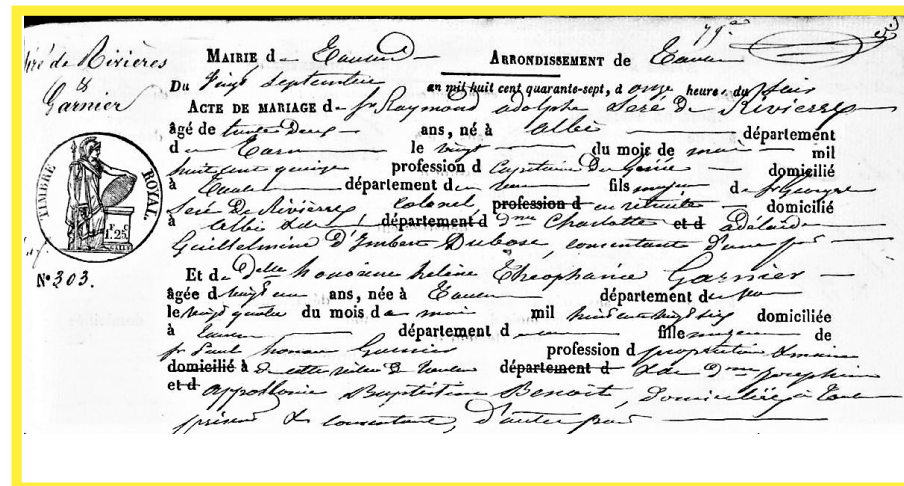 79.
Séré de Rivières
&
Garnier
MAIRIE de Toulon ARRONDISSEMENT de Toulon
Du vingt septembre an mil huit cent quarante-sept, à onze heures du soir
ACTE DE MARIAGE de sr Raymond adolphe Séré De Rivières
âgé de trente deux ans, né à Albi département
du Tarn le vingt du mois de mai mil
huit cent quinze profession de Capitaine du Génie domicilié
à Toulon département du fils majeur de sr
Séré De Rivières Colonel profession d en retraite domicilié
à Albi & de département d dme Charlotte et d adélaïde
Guillelmine D'Imbert Dubosc, consentants d'une part
TIMBRE ROYAL.
1f 25c
N° 303.
Et de Delle honorine hélène Théophanie Garnier
âgée de vingt un ans, née à Toulon département du
le vingt quatre du mois de mai mil huit cent vingt six domiciliée
à Toulon département d fille majeure de
sr Paul Garnier profession de propriétaire & maire
domicilié à de cette ville de Toulon département d & de dme Joséphine
et d appollonie Baptistine Benoit, Domiciliés à Toulon
présents & consentants, d'autre part